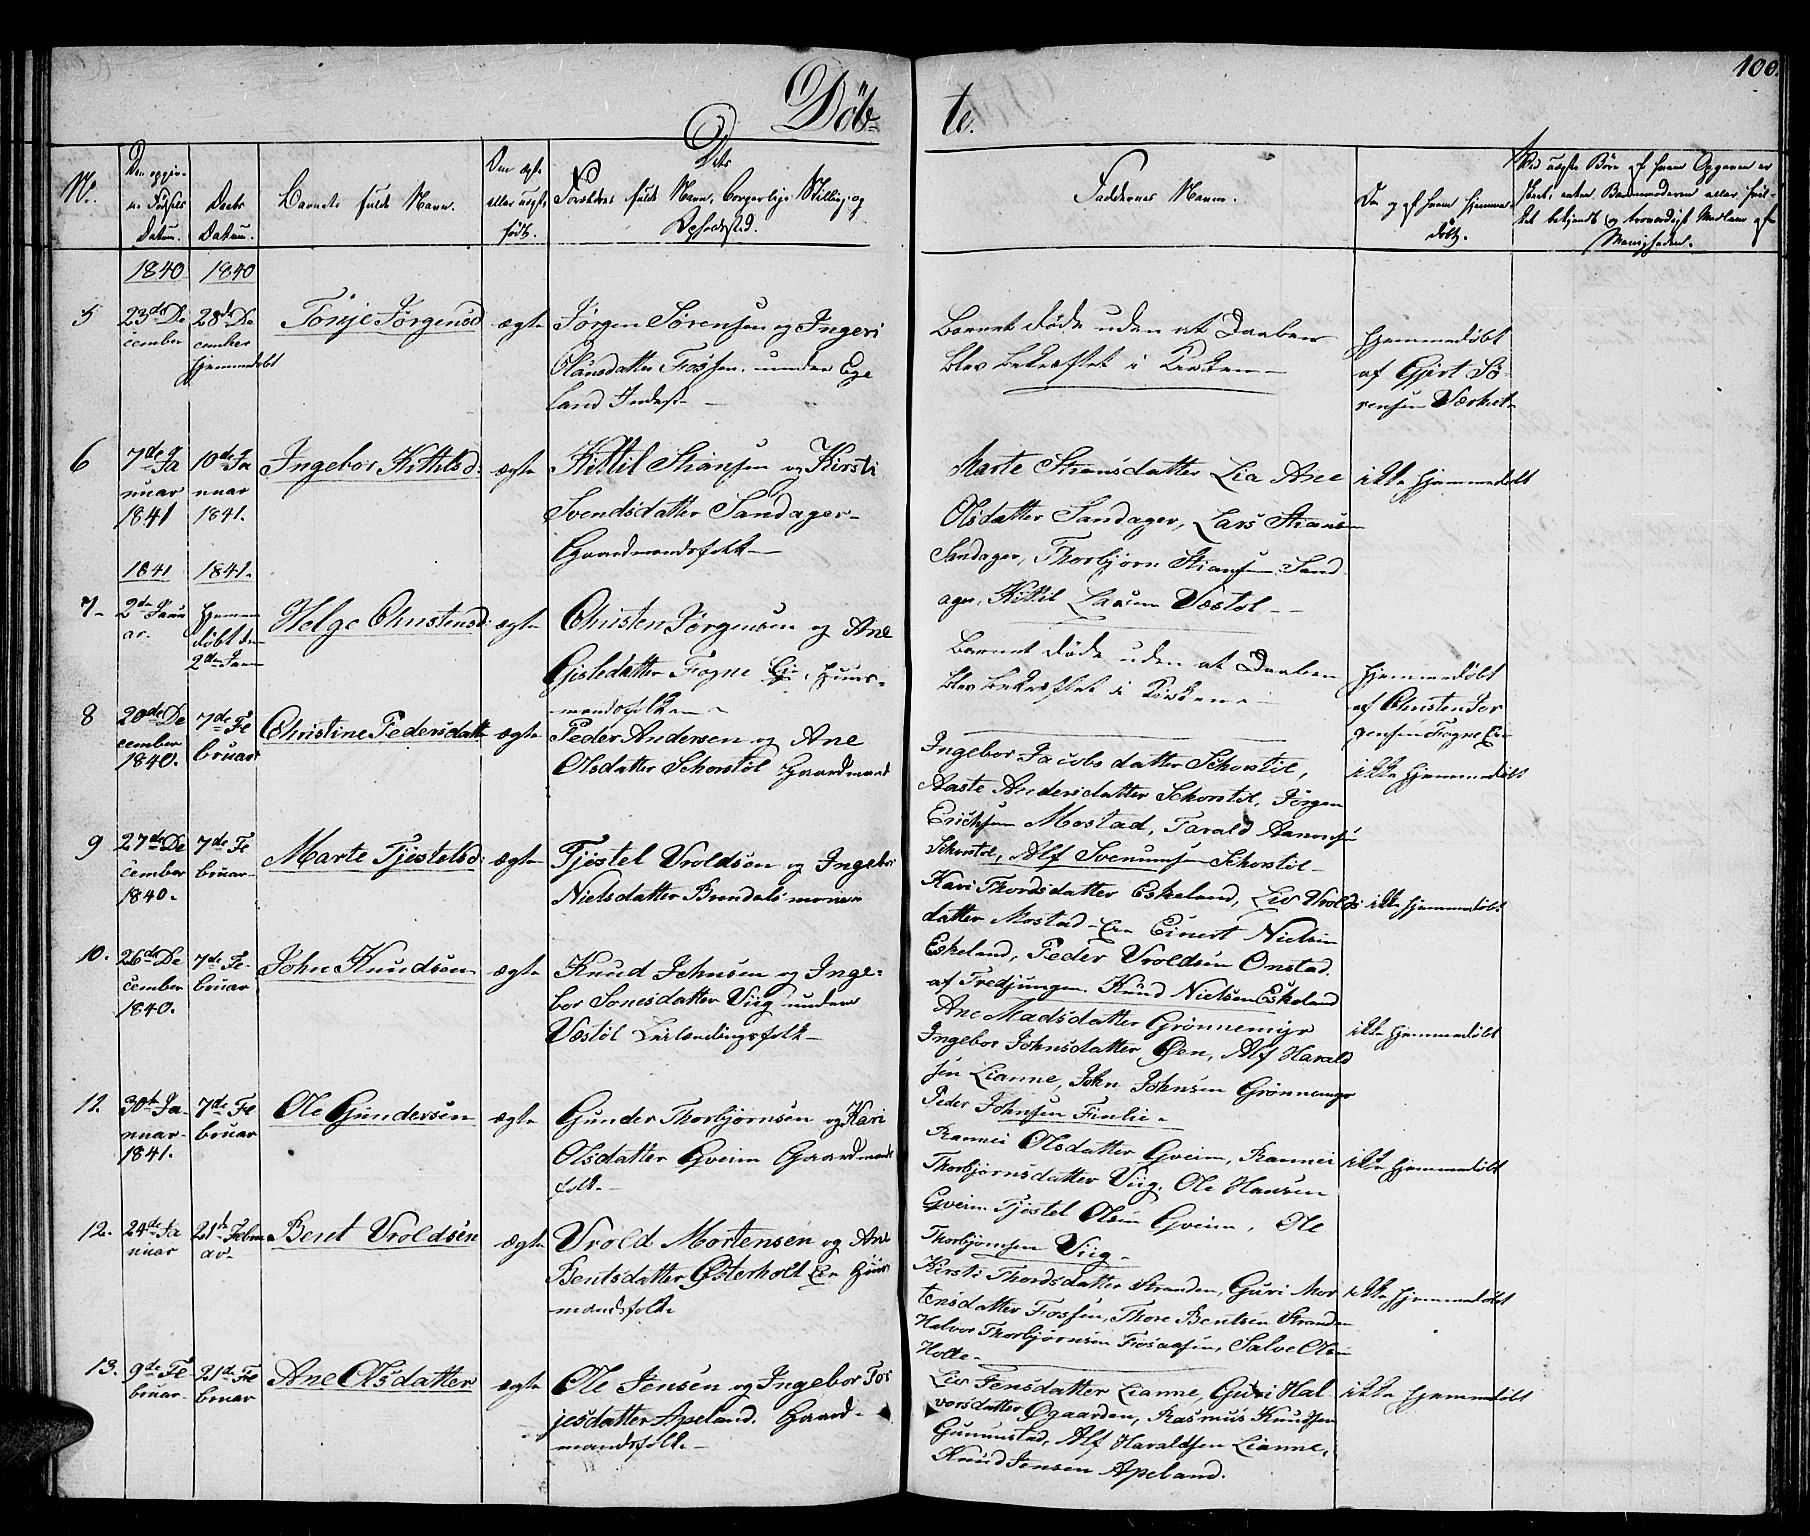 100.
Döb-
te.
No.
Den opgiv-
ne Fødsels
Datum.
Daabs
Datum.
Barnets fulde Navn.
Om ægte
eller uægte
født.
Dets
Forældres fulde Navn, borgerlige Stilling og
Opholdssted.
Faddernes Navne.
Om og af hvem hjemme-
døbt.
Ved uægte Børn af hvem Opgaven er
skeet, enten Barnemoderen eller hvil-
ket bekjendt og troværdigt Medlem af
Menigheden.
1840
1840
5
23de De
cember
28de De
cember
hjemmedøbt
Tönje Jørgensd
ægte
Jørgen Sørensen og Ingeri
Olausdatter Fossen under Ege
land
Barnet døde uden at Daaben
blev bekræftet i Kirken
hjemmedøbt
af Gjert Sö-
rensen Værket
6
7de Ja
nuar
1841
10de Ja
nuar
1841.
Ingebor Kittilsd.
ægte
Kittil Stiansen og Kirsti
Svendsdatter Sandager
Gaardmandsfolk
Marte Stiansdatter Lia Ane
Olsdatter Sandager, Lars Stians
Sandager, Thorbjørn Stiansen Sand
ager, Kittil Larsen Væstöl
ikke hjemmedøbt
1841
1841.
7
2de Janu
ar.
hjemme
döbt den
2den Janu
Helge Christensd.
ægte
Christen Jørgensen og Ane
Gisledatter Fogne Eie Huus-
mandsfolk
Barnet døde uden at Daaben
blev bekræftet i Kirken
hjemmedøbt
af Christen Jør
gensen Fogne Eie
8
20de De
cember
1840.
7de Fe
bruar
Christine Pedersdatt
ægte
Peder Andersen og Ane
Olsdatter Schorstöl Gaardmand
Ingebor Jacobsdatter Schorstöl,
Aaste Andersdatter Schorstöl, Jørgen
Erichsen Mostad, Tarald Aanonsen
Schorstöl, Alf Svenumsen Schorstöl
ikke hjemmedøbt
9
27de De
cember
1840.
7de Fe
bruar
Marte Tjøstelsd.
ægte
Tjøstel Vroldsen og Ingebor
Nielsdatter Brendalsmonen
Kari Thordsdatter Eskeland, Liv Vrolds
datter Mostad Eie Einert Nielsen
Eskeland, Peder Vroldsen Onstad
af Tredjungen. Knud Nielsen Eskeland
ikke hjemmedøbt
10.
26de De
cember
1840.
7de Fe-
bruar
John Knudsen
ægte
Knud Johnsen og Inge-
bor Sonesdatter Viig under
Væstöl Leilændingsfolk
Ane Madsdatter Grønnemyr
Ingebor Johnsdatter Øen, Alf Harald
sen Lianne, John Johnsen Grönnemyr
Peder Johnsen Finlie.
ikke hjemmedøbt
11.
30te Ja-
nuar
1841.
7de Fe
bruar
Ole Gundersen
ægte
Gunder Thorbjørnsen og Kari
Olsdatter Gveim Gaardmands
folk
Rannei Olsdatter Gveim, Rannei
Thorbjørnsdatter Viig. Ole Hansen
Gveim Tjøstel Olsen Gveim, Ole
Thorbjørnsen Viig
ikke hjemmedøbt
12.
24de Ja
nuar
21de Febru
ar.
Bent Vroldsen
ægte
Vrold Mortensen og Ane
Bentsdatter Østerholt Eie Huus
mandsfolk
Kirsti Thordsdatter Stranden, Guri Mor
tensdatter Fossen, Thore Bentsen Stranden
Halvor Thorbjørnsen Fosaasen, Salve Olsen
Holte
ikke hjemmedøbt
13.
9de Fe
bruar
21de Fe
bruar
Ane Olsdatter
ægte
Ole Jensen og Ingebor Tor
jesdatter Apeland. Gaard-
mandsfolk
Liv Jensdatter Lianne, Guri Hal
vorsdatter Øgaarden, Rasmus Knudsen
Gunnustad, Alf Haraldsen Lianne,
Knud Jensen Apeland.
ikke hjemmedøbt